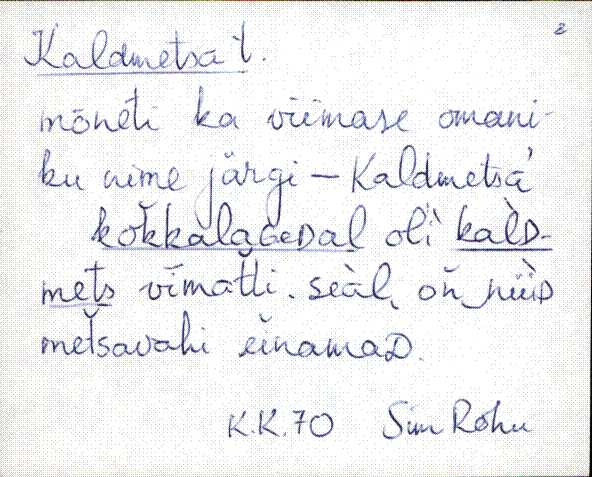 2
Kaldmetsa t.
mõneti ka viimase omani-
ku nime järgi – Kaldmetsa
kòk̆kalaGeDal oli kàlD-
mets vīmatli. seàl, on̆ nüìD
metsavahi einamaD.
K.K.70 Sim Rõhu